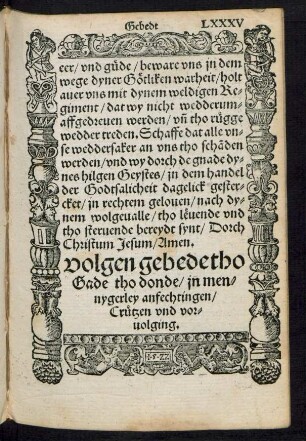 Gebedt LXXXV
cer / vnd gůde / beware vns jn dem
wege dyner Gőtliken warheit / holt
auer vns mit dynem weldigen Re-
giment / dat wy nicht wedderum-
affgedreuen werden / vñ tho růgge
wedder treden. Schaffe dat alle vn-
se weddersaker an vns tho schåden
werden / vnd wy dorch de gnade dy-
nes hilgen Geystes / jn dem handel
der Godtsalicheit dagelick gester-
cket / jn rechtem gelouen / nach dy-
nem wolgeualle / tho lěuende vnd
tho steruende bereydt synt / Dorch
Christum Jesum / Amen.
Volgen gebede tho
Gade tho donde / jn men-
nygerley anfechtingen /
Crůtzen vnd vor-
uolging.